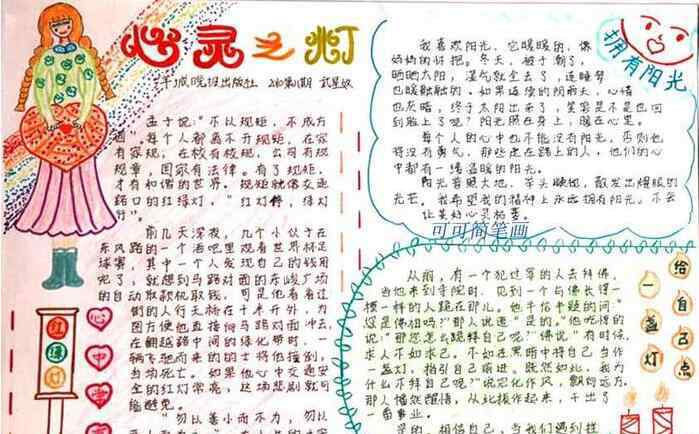 心灵之灯
孟子说："不以规矩，不成方
圆"。每个人都离不开规矩，在家
有家规，在校有校规，公司有规
规章，国家有法律。有了规矩，
才有和谐的世界。规矩就像交通
路口的红绿灯，"红灯停，绿灯
行"。
前几天深夜，几个小伙子在
东风路的一个酒吧里观看世界杯足
球赛，其中一个人发现自己的钱用
完了，就想到马路对面的东峻广场
的自动取款机取钱，可是他看看过
街的人行天桥在十米开外，为
图方便他直接向马路对面冲去，
在翻越路中间的绿化带时，一
辆飞驰而来的的士将他撞倒，
当场死亡。如果他心中交通安
全的红灯常亮，这场悲剧就可
能避免。
"勿以善小而不为，勿以
红
绿
灯
心
中
常
亮
拥有阳光
我喜欢阳光，它暖暖的，像
妈妈的怀抱。冬天，被子潮了，
晒晒太阳，湿气就全去了，连睡梦
也暖融融的。如果连续的阴雨天，心情
也灰暗，终于太阳出来了，笑容是不是也回
到脸上了呢？阳光照在身上，暖在心里。
每个人的心中也不能没有阳光，否则他
将没有勇气，那些走在路上的人，他们的心
中都有一缕温暖的阳光。
阳光普照大地，
芒。我希望我的精神上永远拥有阳光，不会
让美好心灵枯萎。
可可简笔画
给
自
己
一
盏
灯
从前，有一个犯过罪的人去拜佛，
当他来到寺院时，见到一个与佛长得一
模一样的人跪在那儿。他干恰卡疑的问"
您是佛祖吗？"那人说道"是的。"他吃惊的
说："那您怎么跪拜自己呢？"佛说："有时候，
求人不如求己。不如在黑暗中将自己当作
一盏灯，指引自己前进。既然如此，我为
什么不拜自己呢？"说完化作风，飘向远方。
那人幡然醒悟，从此振作起来，干出了
一番事业。
是的，相信自己，当我们遇到挫